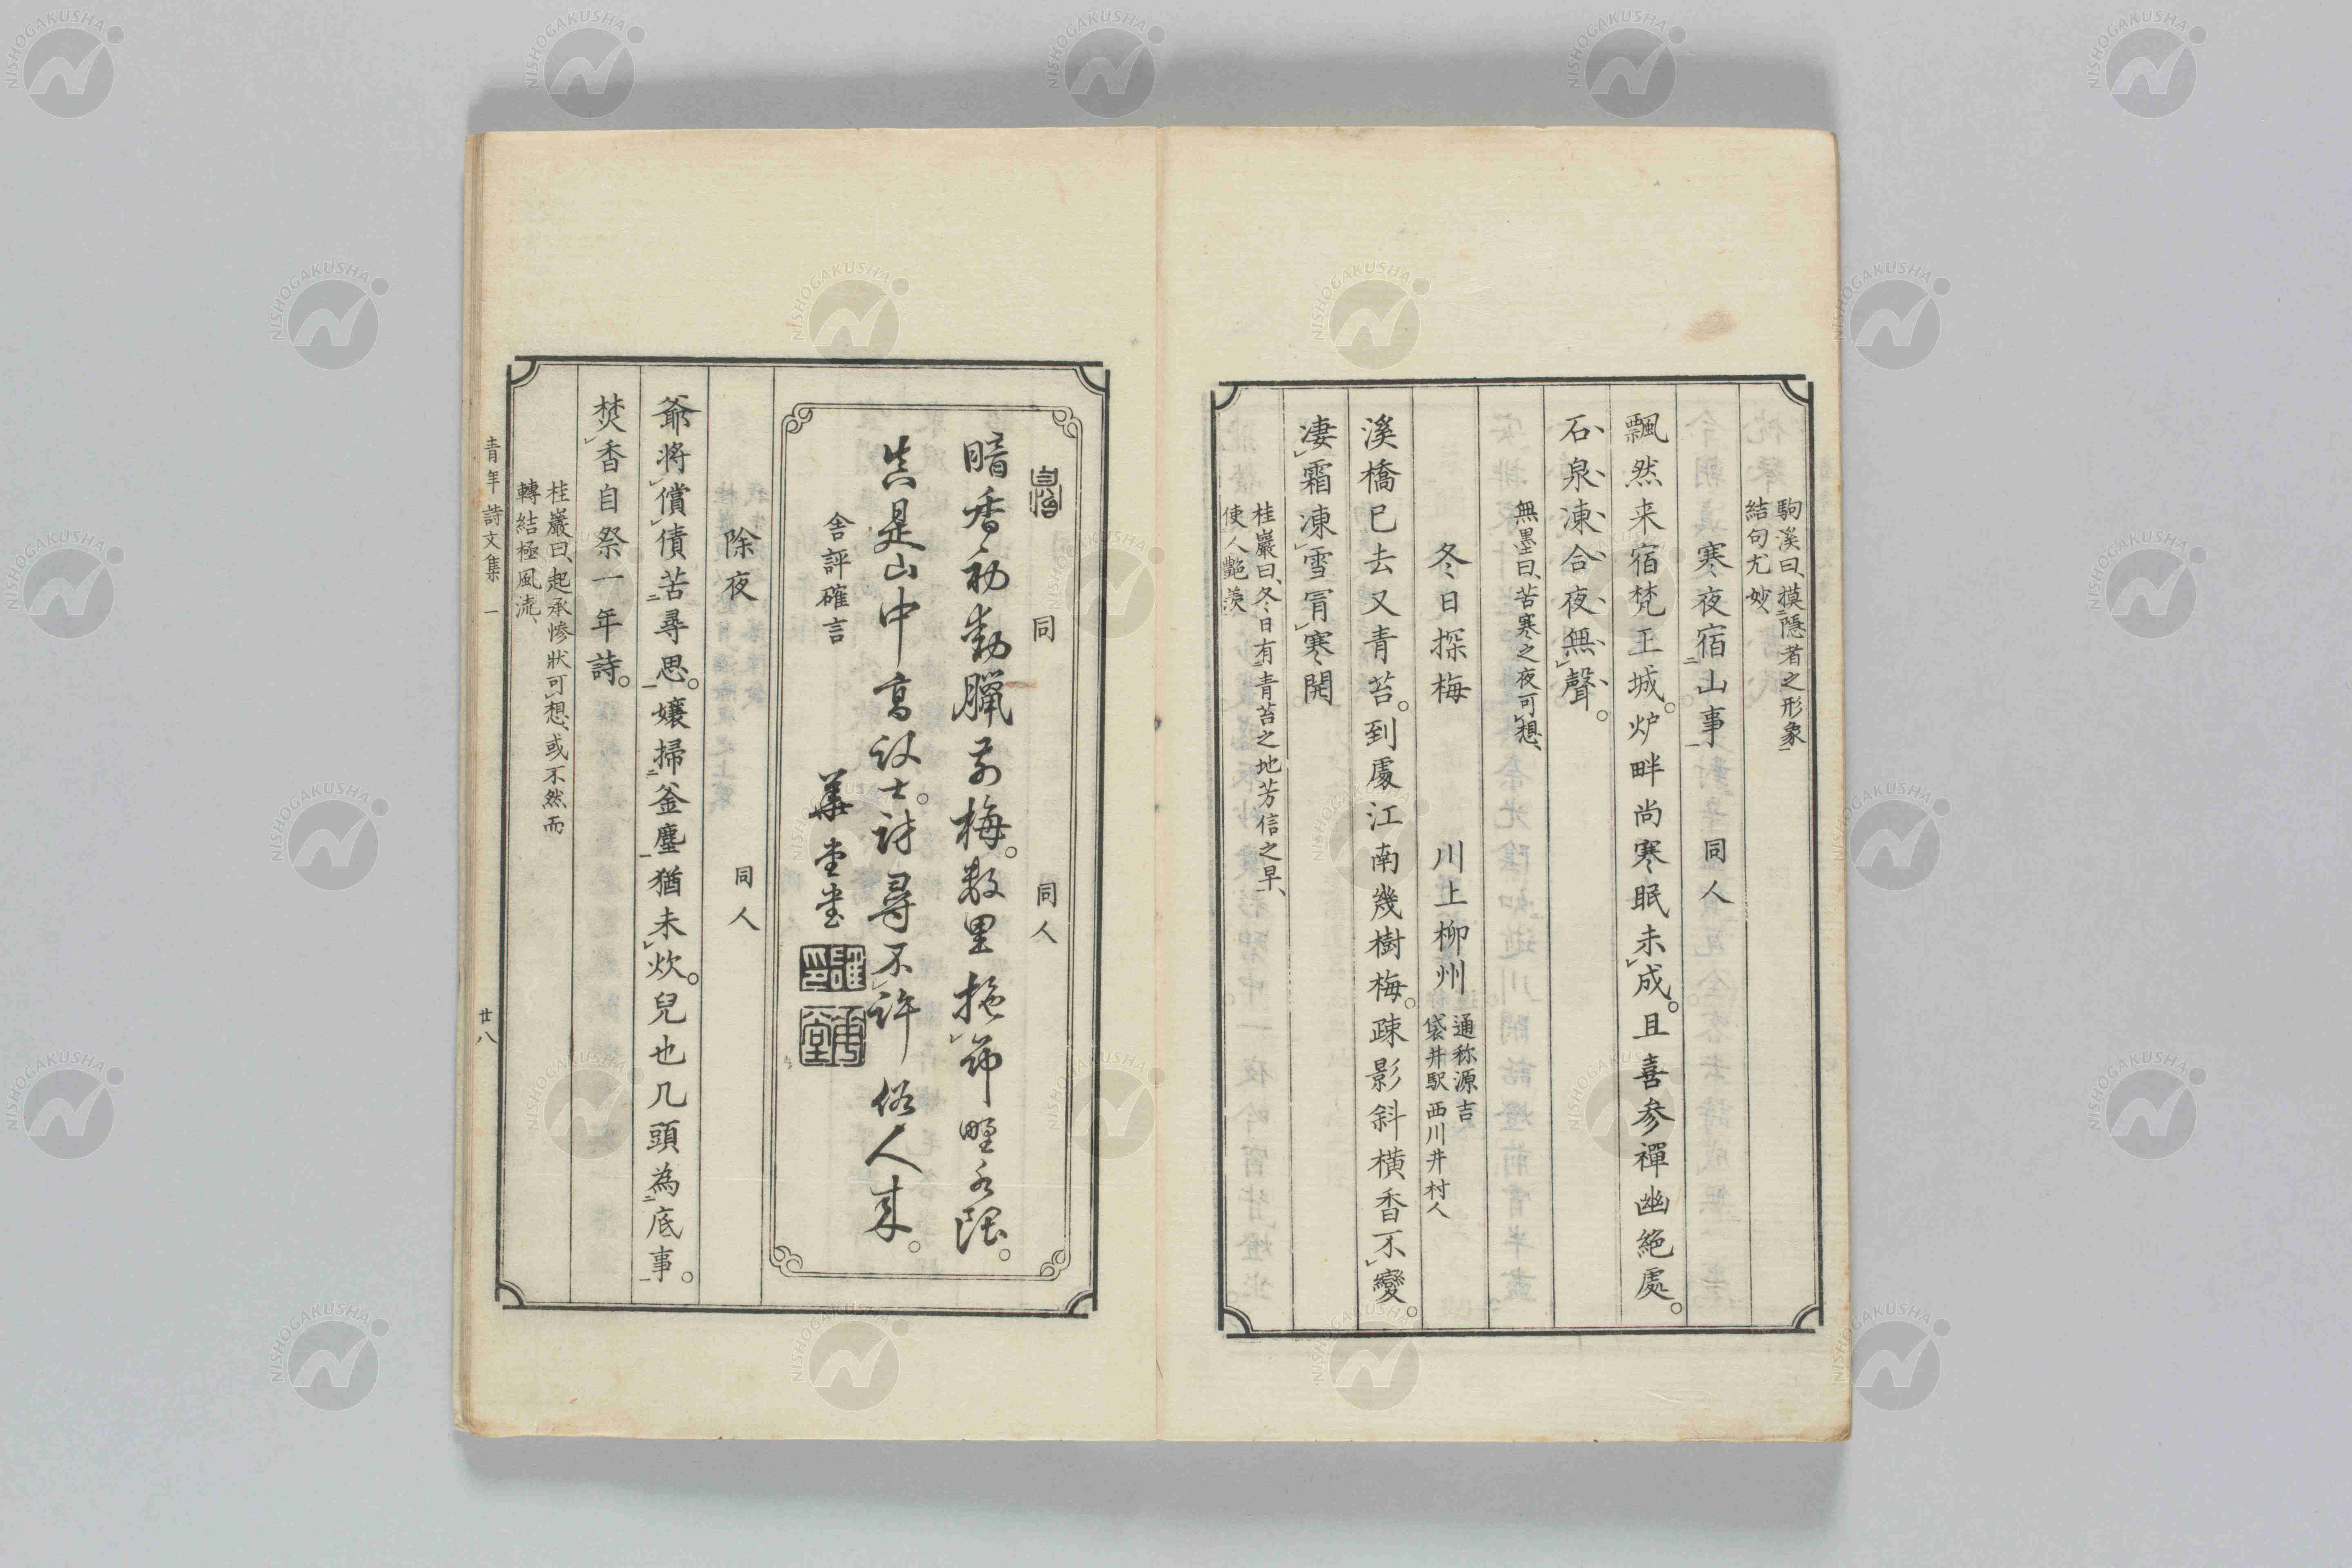 駒溪曰、摸隱者之形象
結句尤妙、
寒夜宿山事 同人
飄然来宿梵王城。炉畔尚寒眠未成。且喜参禪幽絶處。
石泉凍合夜無聲。
無墨曰、苦寒之夜可想、
冬日探梅 川上柳州 通称源吉
袋井駅西川井村人
溪橋已去又青苔。到處江南幾樹梅。疎影斜橫香不變。
凄霜凍雪肎寒開
桂巖曰、冬日有青苔之地芳信之早、
使人艶羨
同 同人
暗香初動臘前梅。数里拖笻野水隈。
真是山中高议士。詩尋不許俗人来。
舎評確言
華堂書
除夜 同人
爺將償債苦尋思。孃掃釜塵猶未炊。兒也几頭為底事。
焚香自祭一年詩。
桂巖曰、起承慘状可想、或不然而
轉結極風流、
青年詩文集 一 廿八
NISHOGAKUSHA